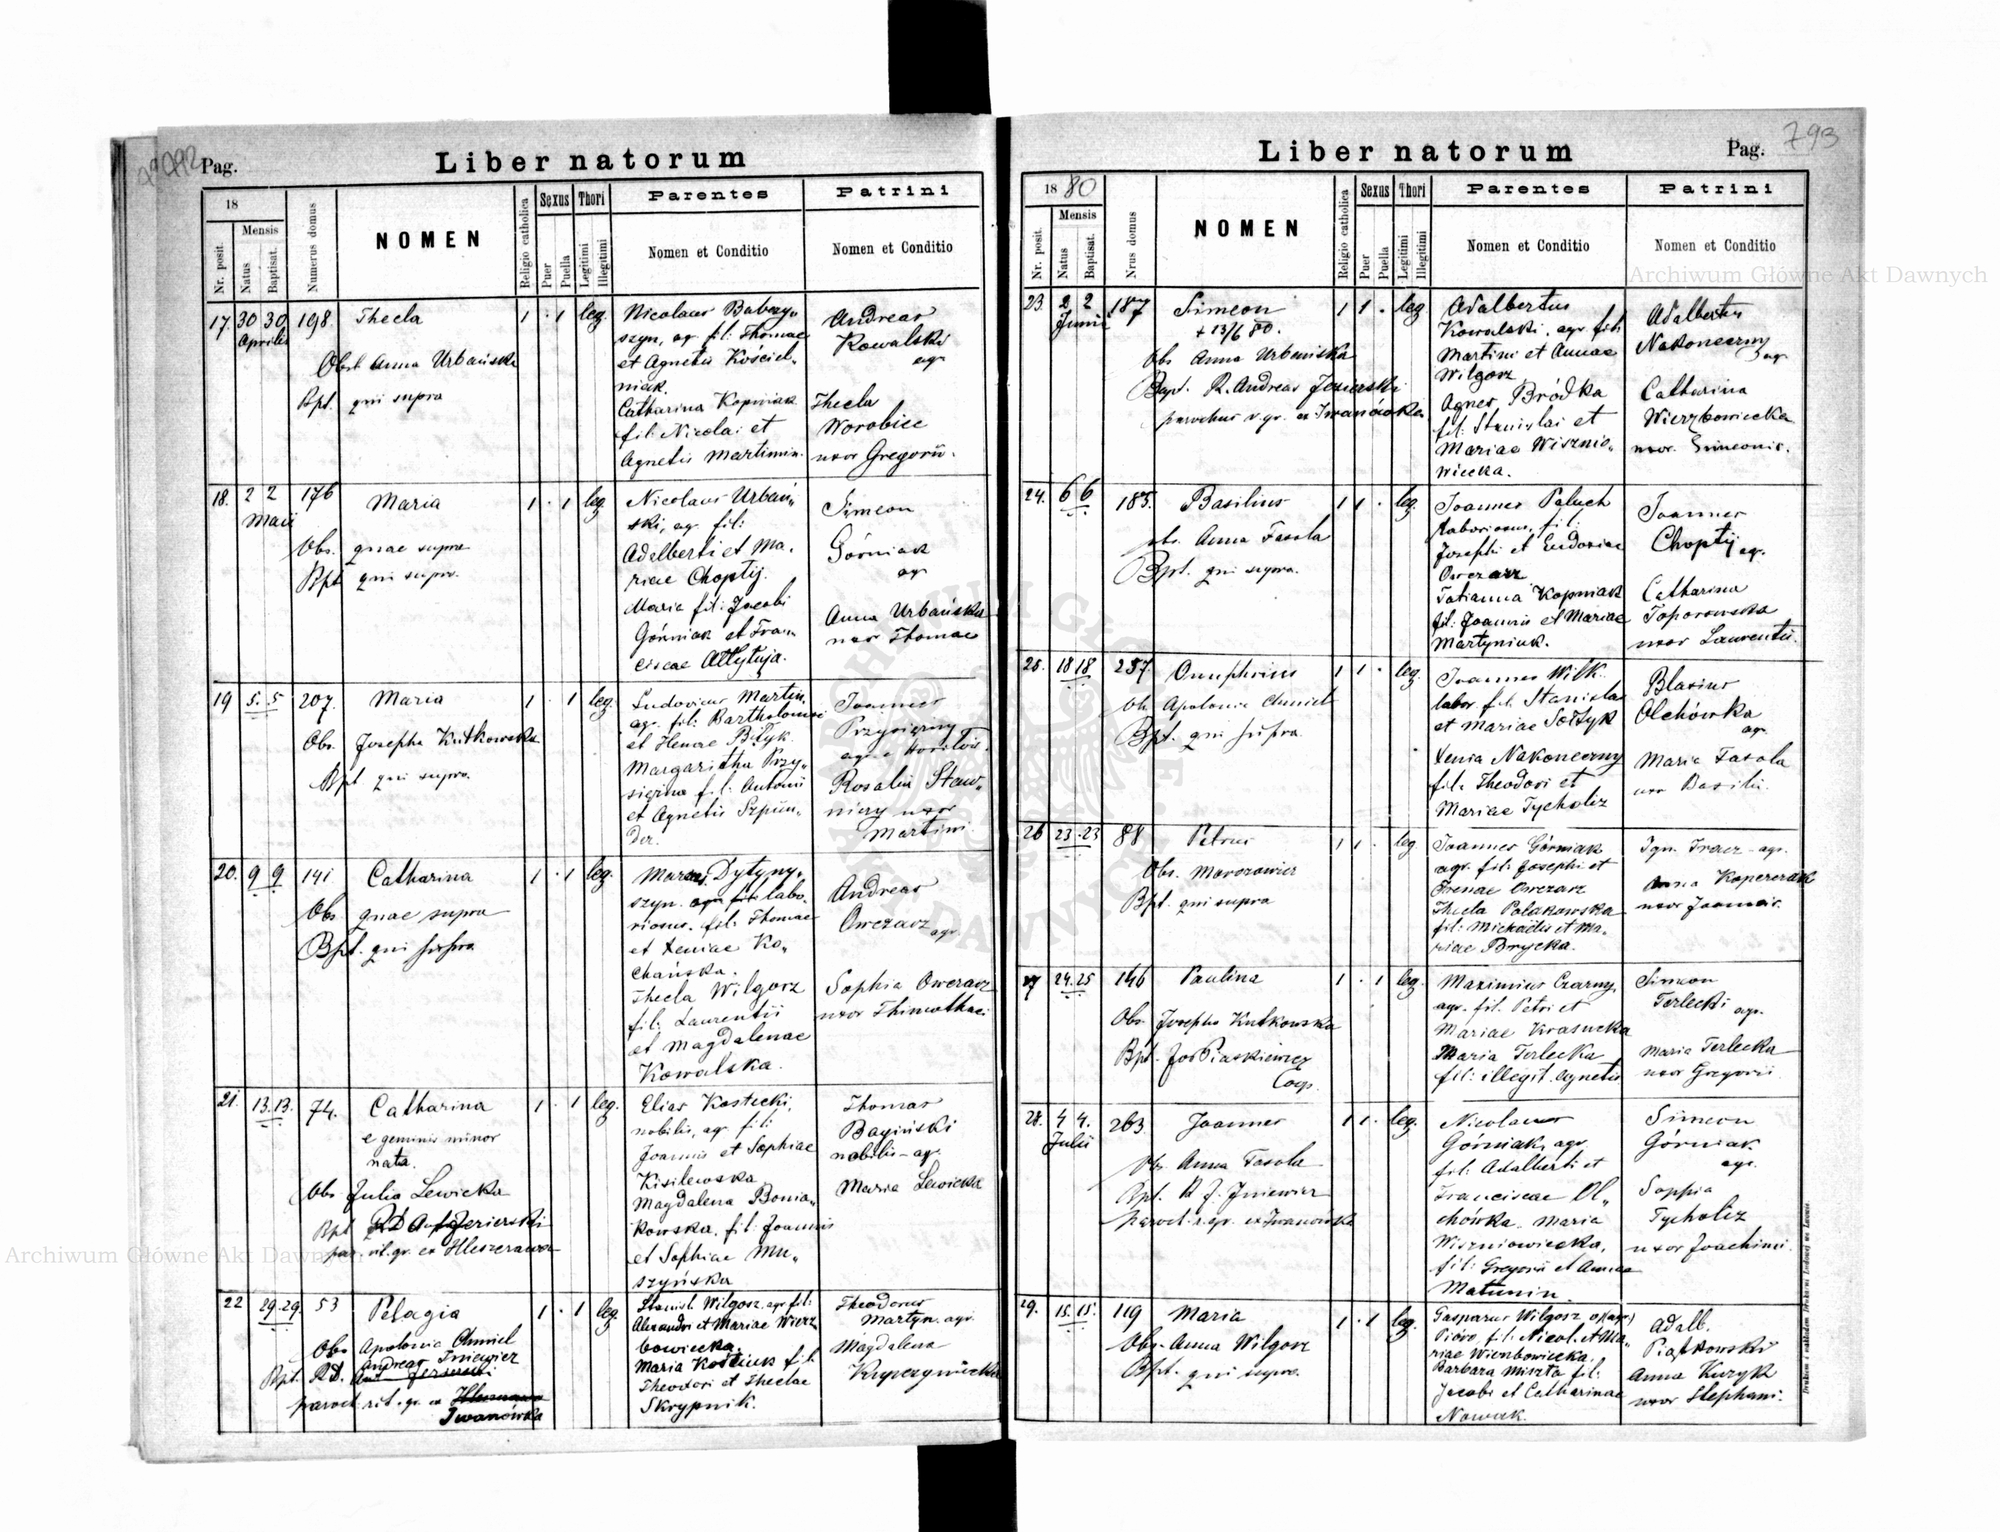 792
Pag.
Liber natorum
18
Nr. posit.
Mensis
Natus
Baptisat.
Numerus domus
NOMEN
Religio catholica
Sexus
Puer
Puella
Thori
Legitimi
Illegitimi
Parentes
Nomen et Conditio
Patrini
Nomen et Conditio
17. 30 30 Aprilis
198.
Thecla
Obst. Anna Urbańska
Bpt. qui supra
1 · 1 leg.
Nicolaus Babczy„
szyn, ag. fil: Thomae
et Agnetis Kościel„
niak.
Catharina Kopniak
fil: Nicolai et
Agnetis Martiniu.
Andreas
Kowalski
agr
Thecla
Worobiec
uxor Gregorii.
18. 2 2 Maii
176
Maria
Obs. quae supra
Bpt qui supra.
1 · 1 leg.
Nicolaus Urbań„
ski, ag. fil:
Adalberti et Ma„
riae Choptij.
Maria fil: Jacobi
Górniak et Fran„
ciscae
Simeon
Górniak
agr
Anna Urbańska
uxor Thomae
19 5. 5
207.
Maria
Obs. Josepha Kutkowska
Bpt qui supra.
1 1 leg.
Ludovicus Martin,
ag. fil: Bartholomei
et Helenae Bityk.
Margaritha Przy„
siężna fil: Antonii
et Agnetis Szpun„
der.
Joannes
Przysiężny
Rosalia Staw„
niczy uxor
Martini.
20. 9 9
141
Catharina
Obs. quae supra
Bpt. qui supra
1 · 1 leg.
Dytyny„
szyn. labo„
riosus. fil: Thomae
et Xeniae Ko„
chańska.
Thecla Wilgorz
fil: Laurentii
et Magdalenae
Kowalska.
Andreas
Owczarz agr.
Sophia Owczarz
uxor Thimothaei
21. 13. 13.
74.
Catharina
e geminis minor
nata.
Obs Julia Lewicka
Bpt RD Jezierski
par. rit. gr. ex Hleszczawa
1 · 1 leg.
Elias Kostecki,
nobilis, ag. fil:
Joannis et Sophiae
Kisilewska.
Magdalena Bonia„
kowska, fil: Joannis
et Sophiae Mu„
szyńska
Thomas
Bagiński
nobilis – ag.
Maria Lewicka
22 29. 29.
53
Pelagia
Obs Apolonia Chmiel
Bpt. RD. Andreas Iniewicz
paroch. rit. gr. ex
Iwanówka
1 · 1 leg
Stanisl. Wilgosz. agr fil:
Alexandri et Mariae Wierz
bowiecka.
Maria Kościuk fil:
Theodori et Theclae
Skrypnik.
Theodorus
Martyn. agr.
Magdalena
793
Liber natorum
Pag.
1880
Nr. posit.
Mensis
Natus
Baptisat.
Nrus domus
NOMEN
Religio catholica
Sexus
Puer
Puella
Thori
Legitimi
Illegitimi
Parentes
Nomen et Conditio
Patrini
Nomen et Conditio
23. 2 2 Junii
187
Simeon
+ 13/6 80.
Obs Anna Urbańska
Bapt. R. Andreas Jezierski
parochus r. gr. ex Iwanówka
1 1 · leg
Adalbertus
Kowalski, agr fil:
Martini et Annae
Wilgosz
Agnes Bródka
fil: Stanislai et
Mariae Wisznio„
wiecka.
Adalbertus
Nakoneczny
agr.
Catharina
Wierzbowiecka
uxor. Simeonis.
24. 6 6
183.
Basilius
ob. Anna Fasola
Bpt. qui supra.
1 1 · leg.
Joannes Paluch
laboriosus, fil:
Josephi et Eudoxiae
Owczarz
Tatianna Kopniak
fil: Joannis et Mariae
Martyniuk.
Joannes
Choptij ag.
Catharina
Toporowska
uxor Laurentii.
25. 18 18
237.
Onuphrius
Ob. Apolonia Chmiel
Bpt. qui supra
1 1 · leg.
Joannes Wilk.
labor fil: Stanislai
et Mariae Sołtyk
Xenia Nakoneczny
fil: Theodori et
Mariae Tycholiz
Blasius
Olchówka
ag.
Maria Fasola
uxo Basilii.
26 23 · 23
88
Petrus
Obs. Morozowicz
Bpt. qui supra
1 1 · leg
Joannes Górniak
agr. fil: Josephi et
Irenae Owczarz
Thecla Polakowska
fil: Michaelis et Ma„
riae Brycka.
Ign. Tracz – agr.
Anna Koperczak
uxor Joannis.
27 24. 25
146
Paulina
Obs. Josepha Kutkowska
Bpt. Jos Piaskiewicz
Coop.
1 · 1 leg
Maximius Czarny,
agr. fil. Petri et
Mariae Krasucka
Maria Terlecka
fil: illegit. Agnetis
Simeon
Terlecki agr.
Maria Terlecka
uxor Gregorii
28. 4 4. Julii
263
Joannes
Obs. Anna Fasola
Bpt. R J. Iniewicz
paroch. r. gr. ex Iwanówka
1 1 · leg.
Nicolaus
Górniak, agr.
fil: Adalberti et
Franciscae Ol„
chówka. Maria
Wiszniowiecka,
fil: Gregorii et Annae
Matunin.
Simeon
Górniak
agr.
Sophia
Tycholiz
uxor Joachimi.
29. 15. 15.
119
Maria
Obs. Anna Wilgosz
Bpt. qui supra.
1 · 1 leg.
Gasparus Wilgosz
Pióro fil: Nicol. et Ma„
riae Wierzbowiecka.
Barbara Miszta fil:
Jacobi et Catharinae
Nowak.
Adalb.
Piątkowski
Anna Kuzyk
uxor Stephani.
Drukiem i nakładem Drukarni Ludowej we Lwowie.
Archiwum Główne Akt Dawnych
Archiwum Główne Akt Dawnych
ARCHIWUM GŁÓWNE AKT DAWNYCH